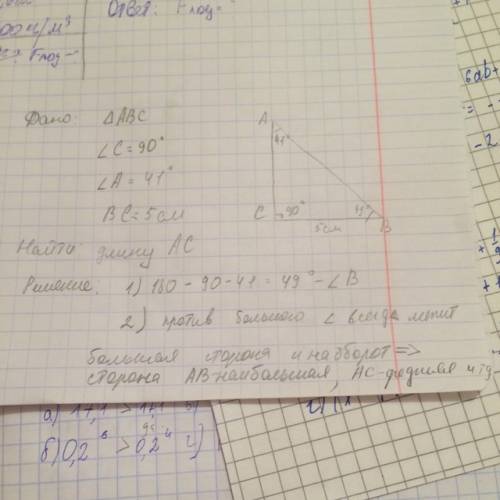 Ответ: Fпод=
Дано: △ABC
∠C=90°
∠A=41°
BC=5см
A
41°
C
90°
49°
B
5см
Найти длину AC
Решение: 1) 180-90-41=49°-∠B
2) против большого ∠ всегда лежит
большая сторона и наоборот =>
сторона AB-наибольшая, AC-средняя
6ab+
-2
б) 0,2 > 0,2